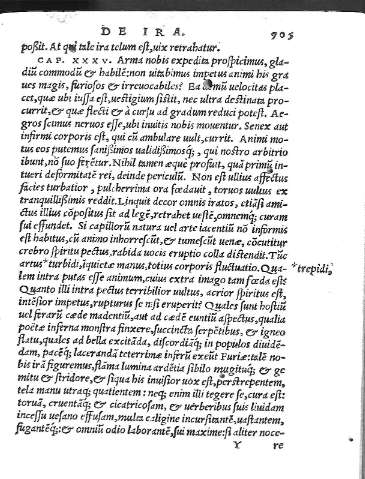 DE IRA. 905
possit. At qui tale ira telum est, uix retrahatur.
CAP. XXXV. Arma nobis expedita prospicimus, gla-
diũ commodũ & habile: non uitabimus impetus animi his gra
ues magis, furiosos & irreuocabiles? Ea demũ uelocitas pla-
cet, quæ ubi iussa est, uestigium sistit, nec ultra destinata pro-
currit, & quæ flecti & à cursu ad gradum reduci potest. Æ-
gros scimus neruos esse, ubi inuitis nobis mouentur. Senex aut
infirmi corporis est, qui cũ ambulare uult, currit. Animi mo-
tus eos putemus sanissimos ualidissimosq́;, qui nostro arbitrio
ibunt, nõ suo ferẽtur. Nihil tamen æque profuit, quã primũ in-
tueri deformitatẽ rei, deinde periculũ. Non est ullius affectus
facies turbatior, pulcherrima ora fœdauit, toruos uultus ex
tranquillissimis reddit. Linquit decor omnis iratos, etiãsi ami-
ctus illius cõpositus sit ad legẽ, retrahet uestẽ, omnemq́; curam
sui effundet. Si capillorũ natura uel arte iacentiũ nõ informis
est habitus, cũ animo inhorrescũt, & tumescũt uenæ, cõcutitur
crebro spiritu pectus, rabida uocis eruptio colla distendit. Tũc
artus* turbidi, iquietæ manus, totius corporis fluctuatio. Qua- *trepidi,
lem intra putas esse animum, cuius extra imago tam fœda est?
Quanto illi intra pectus terribilior uultus, acrior spiritus est,
intẽsior impetus, rupturus se nisi eruperit? Quales sunt hostiũ
uel ferarũ cæde madentiũ, aut ad cædẽ euntiũ aspectus, qualia
poëtæ inferna monstra finxere, succincta serpẽtibus, & igneo
flatu, quales ad bella excitãda, discordiãq́; in populos diuidẽ-
dam, pacẽq́; lacerandã teterrimæ inferũ exeũt Furiæ: talẽ no-
bis irã figuremus, flãma lumina ardẽtia sibilo mugituq́; & ge
mitu & stridore, & siqua his inuisior uox est, perstrepentem,
tela manu utraq́; quatientem: neq; enim illi tegere se, cura est:
toruã, cruentãq́; & cicatricosam, & uerberibus suis liuidam
incessu uesano effusam, multa caligine incursitantẽ, uastantem,
fugantẽq́;: & omniũ odio laborantẽ, sui maxime: si aliter noce-
Y re